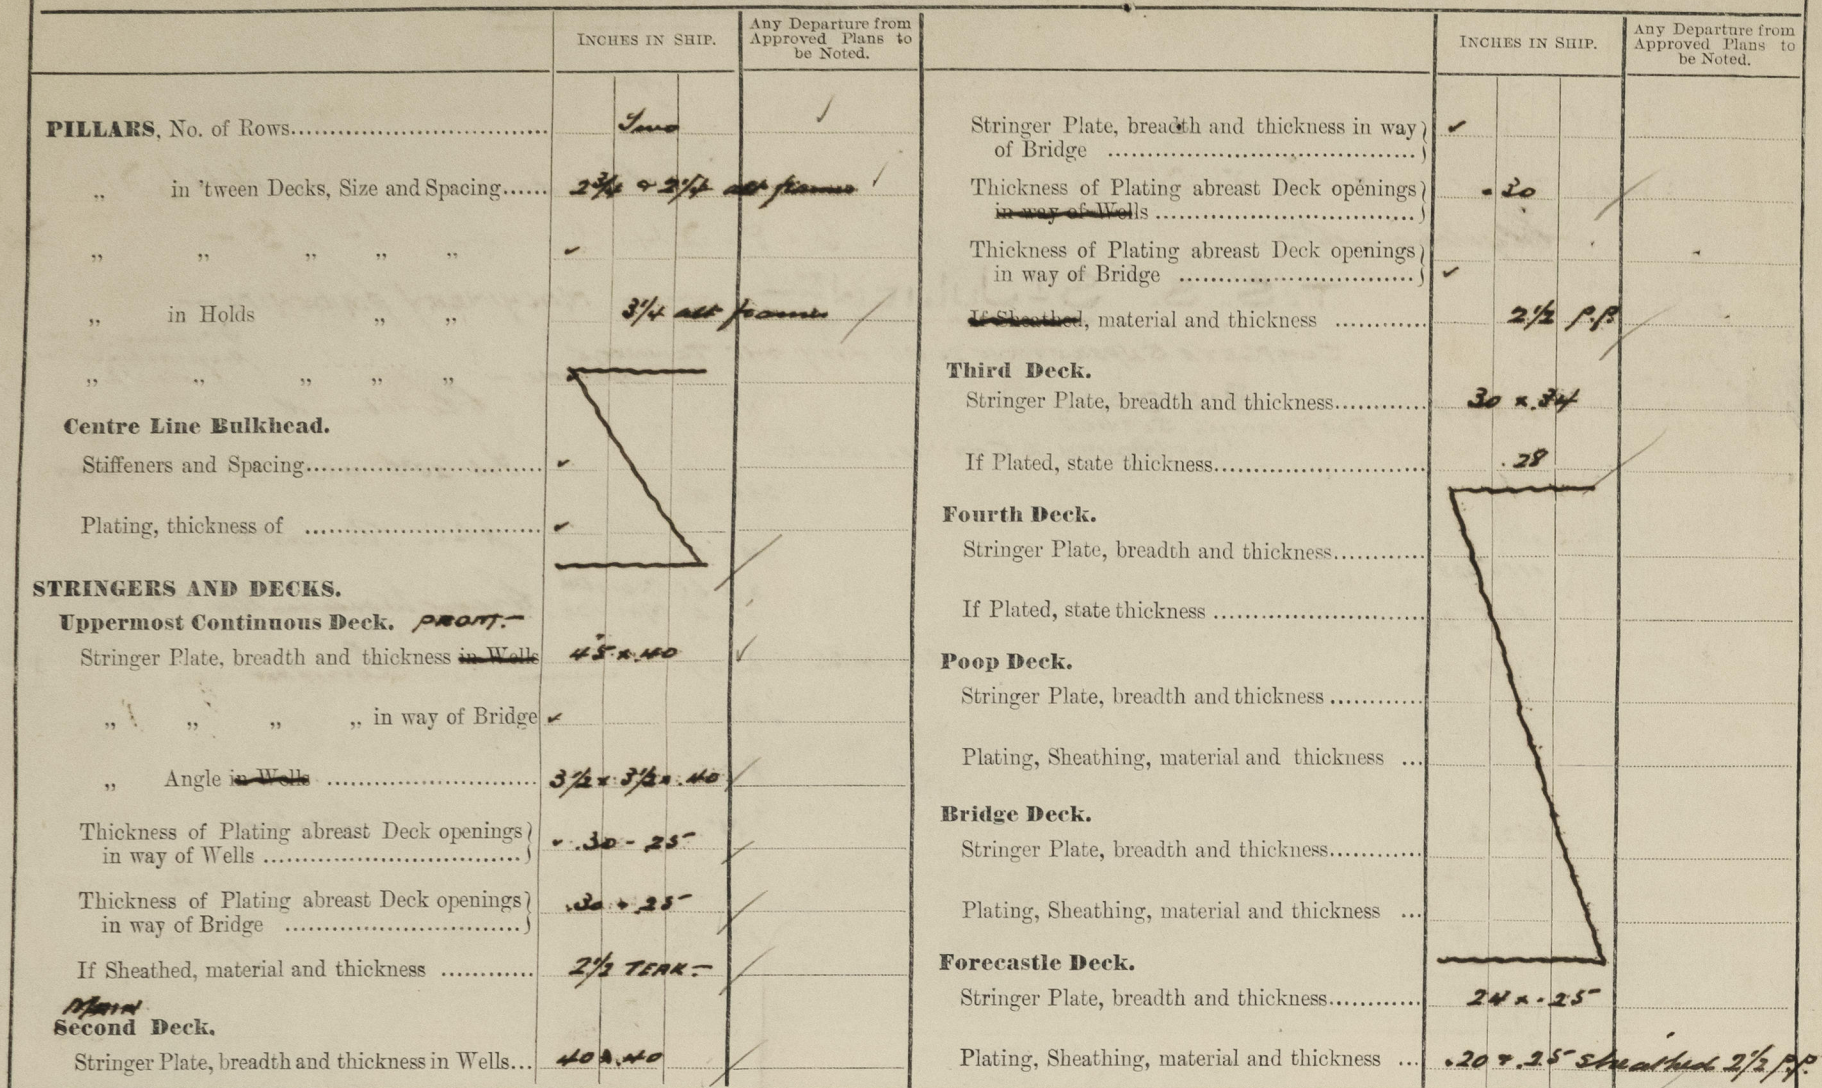 INCHES IN SHIP.
Any Departure from
Approved Plans to
be Noted.
PILLARS, No. of Rows.............................. Two
„ in 'tween Decks, Size and Spacing...... 2 3/4 & 2 1/4 alt frames
„ „ „ „ „
„ in Holds „ „ 3 1/4 alt frames
„ „ „ „ „
Centre Line Bulkhead.
Stiffeners and Spacing..............................
Plating, thickness of ..............................
STRINGERS AND DECKS.
Uppermost Continuous Deck. PROM.
Stringer Plate, breadth and thickness in Wells 45 x .40
„ „ „ „ in way of Bridge
„ Angle in Wells .......................... 3 1/2 x 3 1/2 x .40
Thickness of Plating abreast Deck openings
in way of Wells ................................ .30 - .25
Thickness of Plating abreast Deck openings
in way of Bridge .............................. .30 & .25
If Sheathed, material and thickness ............ 2 1/2 TEAK
Main
Second Deck.
Stringer Plate, breadth and thickness in Wells... 40 x .40
INCHES IN SHIP.
Any Departure from
Approved Plans to
be Noted.
Stringer Plate, breadth and thickness in way
of Bridge ........................................
Thickness of Plating abreast Deck openings
in way of Wells ................................ .30
Thickness of Plating abreast Deck openings
in way of Bridge ..............................
If Sheathed, material and thickness ............ 2 1/2 P.P.
Third Deck.
Stringer Plate, breadth and thickness............ 30 x .34
If Plated, state thickness............................ .28
Fourth Deck.
Stringer Plate, breadth and thickness............
If Plated, state thickness ............................
Poop Deck.
Stringer Plate, breadth and thickness ............
Plating, Sheathing, material and thickness ...
Bridge Deck.
Stringer Plate, breadth and thickness............
Plating, Sheathing, material and thickness ...
Forecastle Deck.
Stringer Plate, breadth and thickness............ 24 x .25
Plating, Sheathing, material and thickness ... .20 & .25 sheathed 2 1/2 P.P.